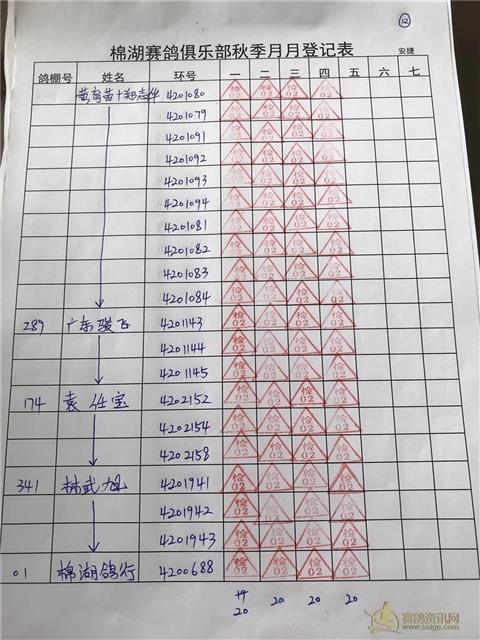 12
棉湖赛鸽俱乐部秋季月月登记表 安捷
鸽棚号 姓名 环号 一 二 三 四 五 六 七
4201080 检02 检02 检02 检02
4201079 检02 检02 检02 检02
4201091 检02 检02 检02 检02
4201092 检02 检02 检02 检02
4201093 检02 检02 检02 检02
4201094 检02 检02 检02 检02
4201081 检02 检02 检02 检02
4201082 检02 检02 检02 检02
4201083 检02 检02 检02 检02
4201084 检02 检02 检02 检02
289 广东骏飞 4201143 检02 检02 检02 检02
4201144 检02 检02 检02 检02
4201145 检02 检02 检02 检02
174 袁任宝 4202152 检02 检02 检02 检02
4202154 检02 检02 检02 检02
4202158 检02 检02 检02 检02
341 林武 4201941 检02 检02 检02 检02
4201942 检02 检02 检02 检02
4201943 检02 检02 检02 检02
01 棉湖鸽行 4200688 检02 检02 检02 检02
20 20 20 20
赛鸽资讯网
www.saige.com